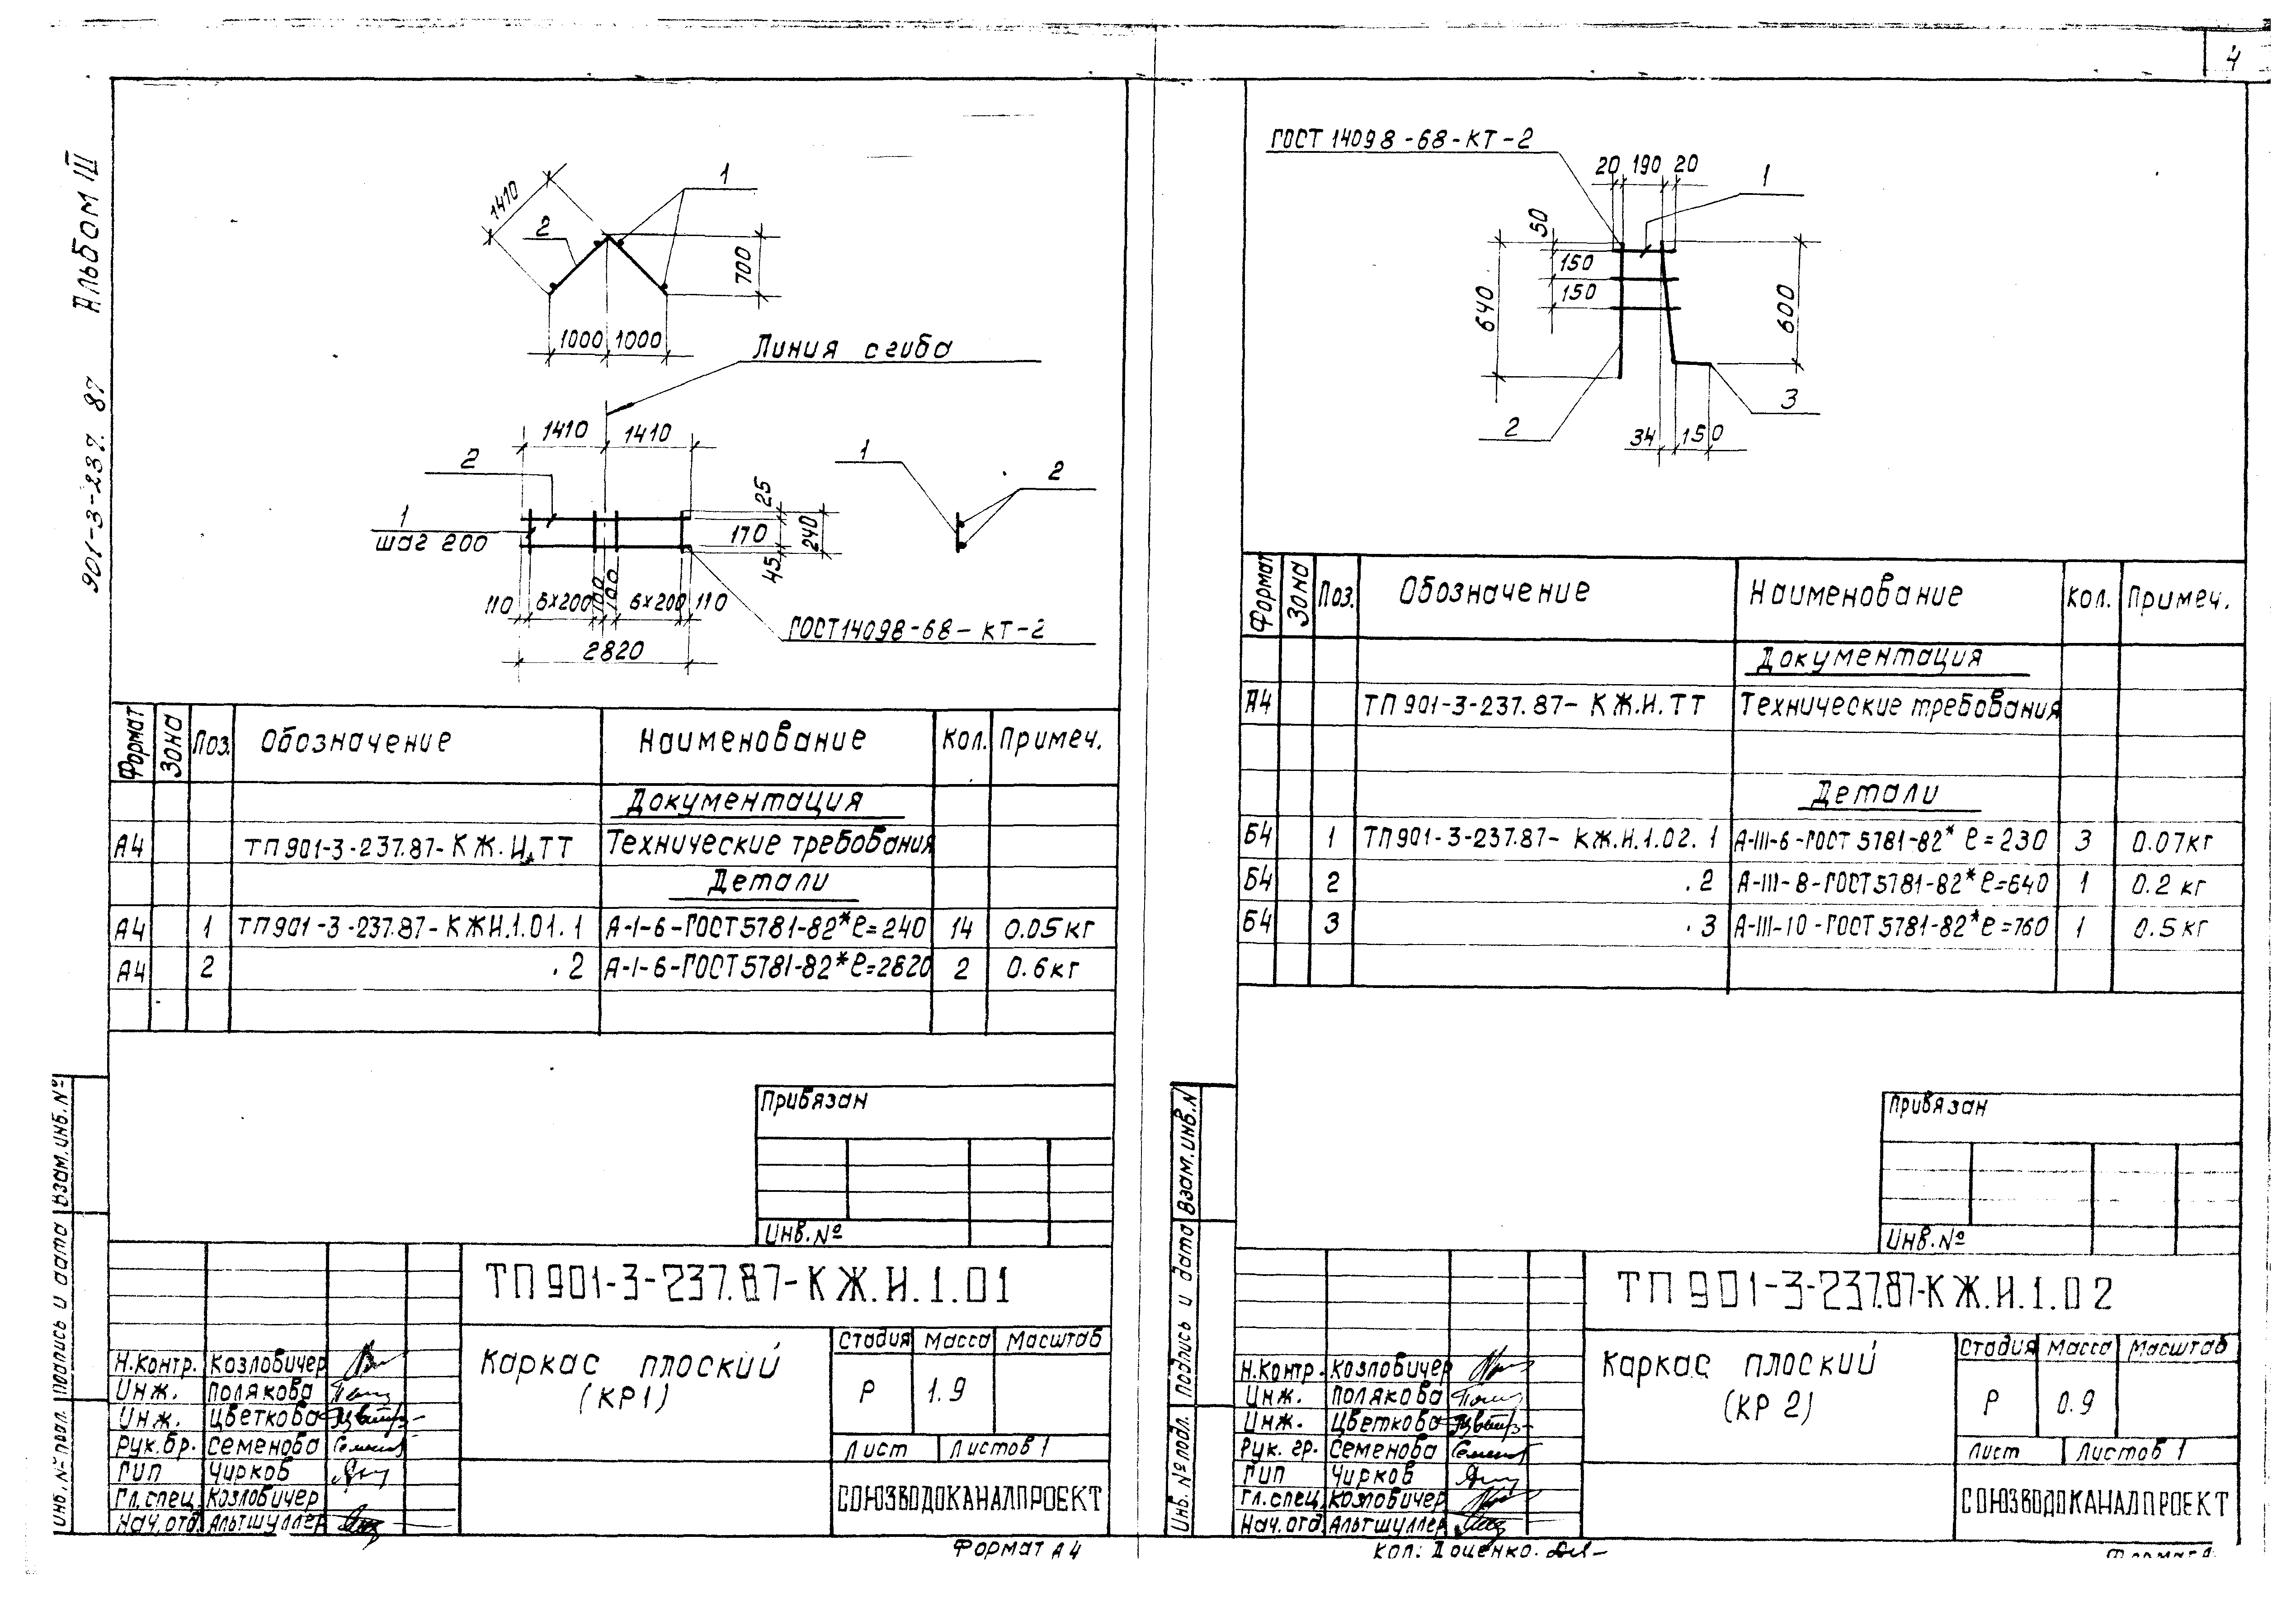 4
Альбом III
901-3-237.87
1410
2
1
700
1000 1000
Линия сгиба
1410 1410
2
1
шаг 200
25
170
240
45
110 6х200 100 100 6х200 110
2820
ГОСТ14098-68-КТ-2
1
2
Формат Зона Поз. Обозначение Наименование Кол. Примеч.
Документация
А4 ТП901-3-237.87-КЖ.И.ТТ Технические требования
Детали
А4 1 ТП901-3-237.87-КЖИ.1.01.1 А-I-6-ГОСТ5781-82* ℓ=240 14 0.05кг
А4 2 .2 А-I-6-ГОСТ5781-82* ℓ=2820 2 0.6кг
Привязан
Инв.№
Взам.инв.№
Подпись и дата
Инв.№подл.
ТП901-3-237.87-КЖ.И.1.01
Каркас плоский
(КР1)
Стадия Масса Масштаб
Р 1.9
Лист Листов 1
СОЮЗВОДОКАНАЛПРОЕКТ
Н.контр. Козловичер
Инж. Полякова
Инж. Цветкова
Рук.бр. Семенова
ГИП Чирков
Гл.спец. Козловичер
Нач.отд. Альтшуллер
Формат А4
ГОСТ 14098-68-КТ-2
20 190 20
1
50
150
150
640
600
2
3
34 150
Формат Зона Поз. Обозначение Наименование Кол. Примеч.
Документация
А4 ТП901-3-237.87-КЖ.И.ТТ Технические требования
Детали
Б4 1 ТП901-3-237.87-КЖ.И.1.02.1 А-III-6-ГОСТ 5781-82* ℓ=230 3 0.07кг
Б4 2 .2 А-III-8-ГОСТ5781-82* ℓ=640 1 0.2кг
Б4 3 .3 А-III-10-ГОСТ5781-82* ℓ=760 1 0.5кг
Привязан
Инв.№
Взам.инв.№
Подпись и дата
Инв.№подл.
ТП901-3-237.87-КЖ.И.1.02
Каркас плоский
(КР 2)
Стадия Масса Масштаб
Р 0.9
Лист Листов 1
СОЮЗВОДОКАНАЛПРОЕКТ
Н.контр. Козловичер
Инж. Полякова
Инж. Цветкова
Рук.гр. Семенова
ГИП Чирков
Гл.спец. Козловичер
Нач.отд. Альтшуллер
Коп: Доценко.